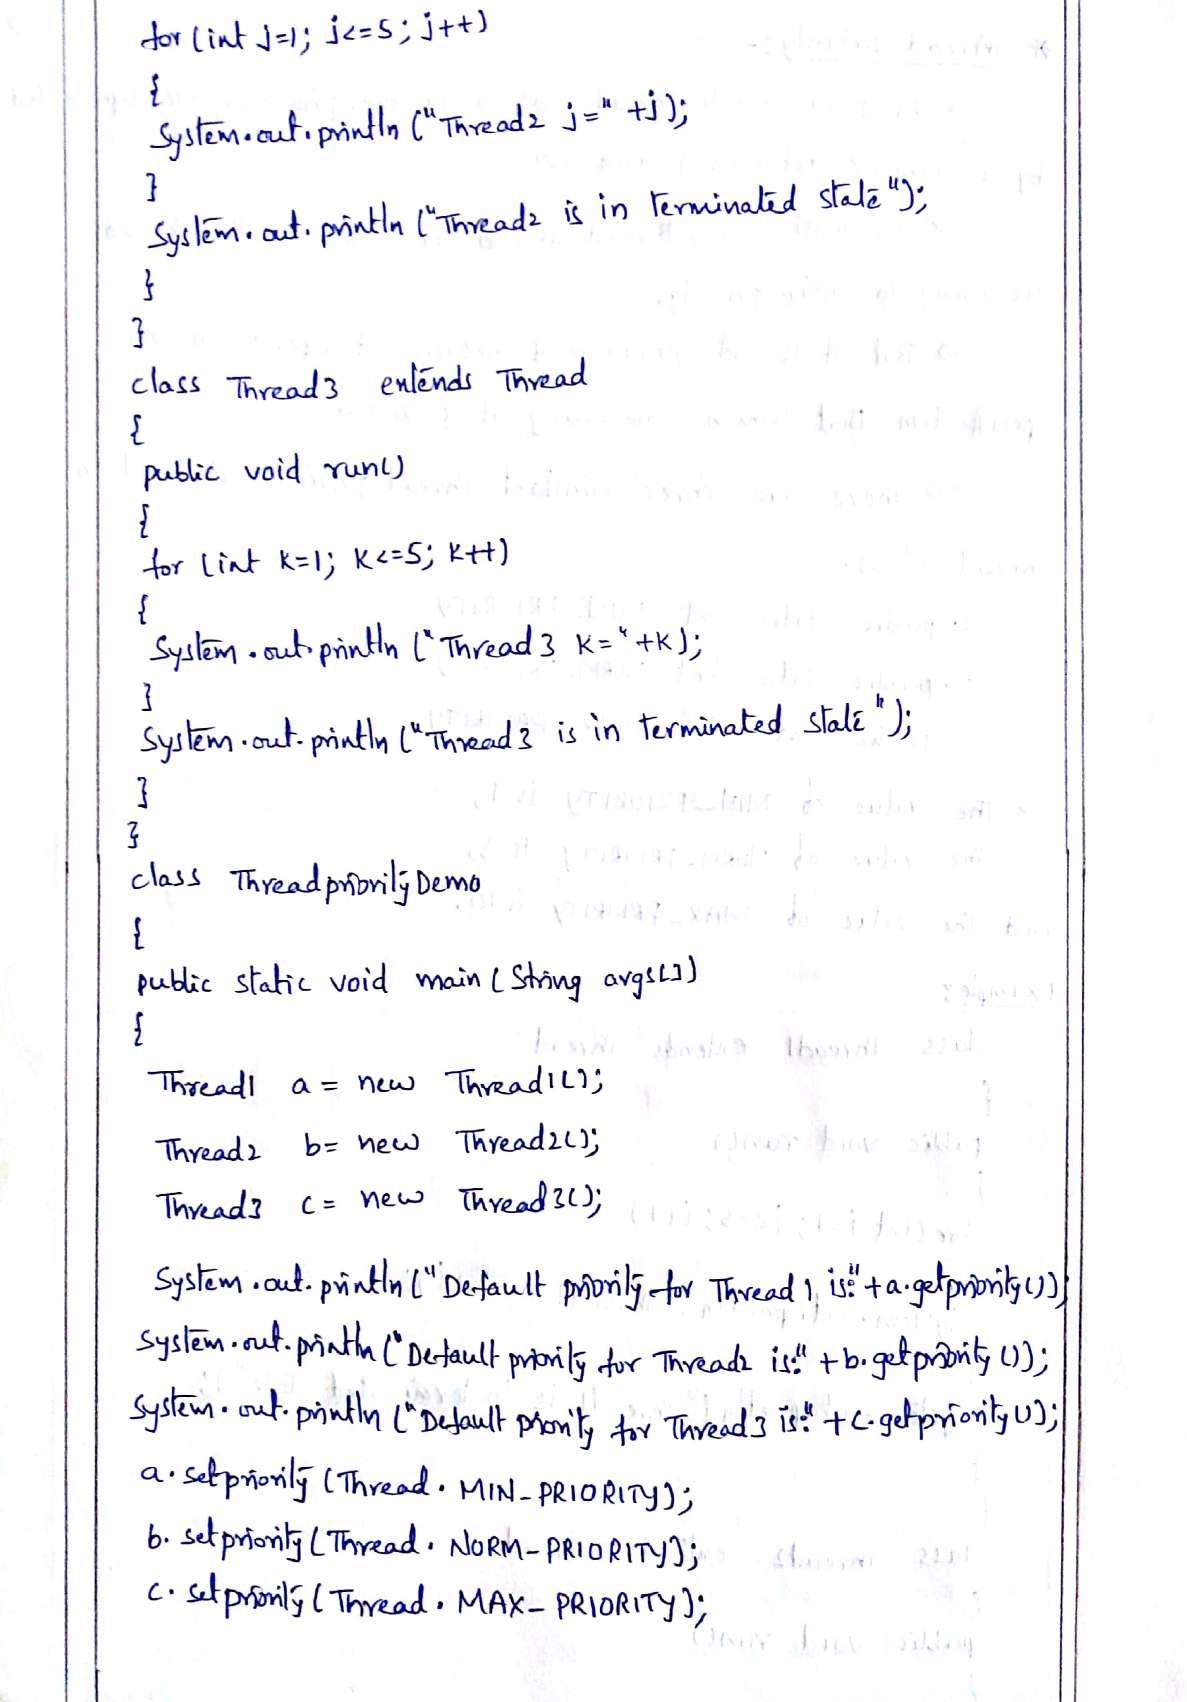 for (int j=1; j<=5; j++)
{
System.out.println ("Thread2 j=" +j);
}
System.out.println ("Thread2 is in terminated state");
}
}
class Thread3 extends Thread
{
public void run()
{
for (int k=1; k<=5; k++)
{
System.out.println ("Thread3 k=" +k);
}
System.out.println ("Thread3 is in terminated state");
}
}
class ThreadpriorityDemo
{
public static void main (String args[])
{
Thread1 a = new Thread1();
Thread2 b= new Thread2();
Thread3 c= new Thread3();
System.out.println ("Default priority for Thread1 is:" +a.getpriority());
System.out.println ("Default priority for Thread2 is:" +b.getpriority());
System.out.println ("Default priority for Thread3 is:" +c.getpriority());
a.setpriority (Thread.MIN_PRIORITY);
b.setpriority (Thread.NORM_PRIORITY);
c.setpriority (Thread.MAX_PRIORITY);